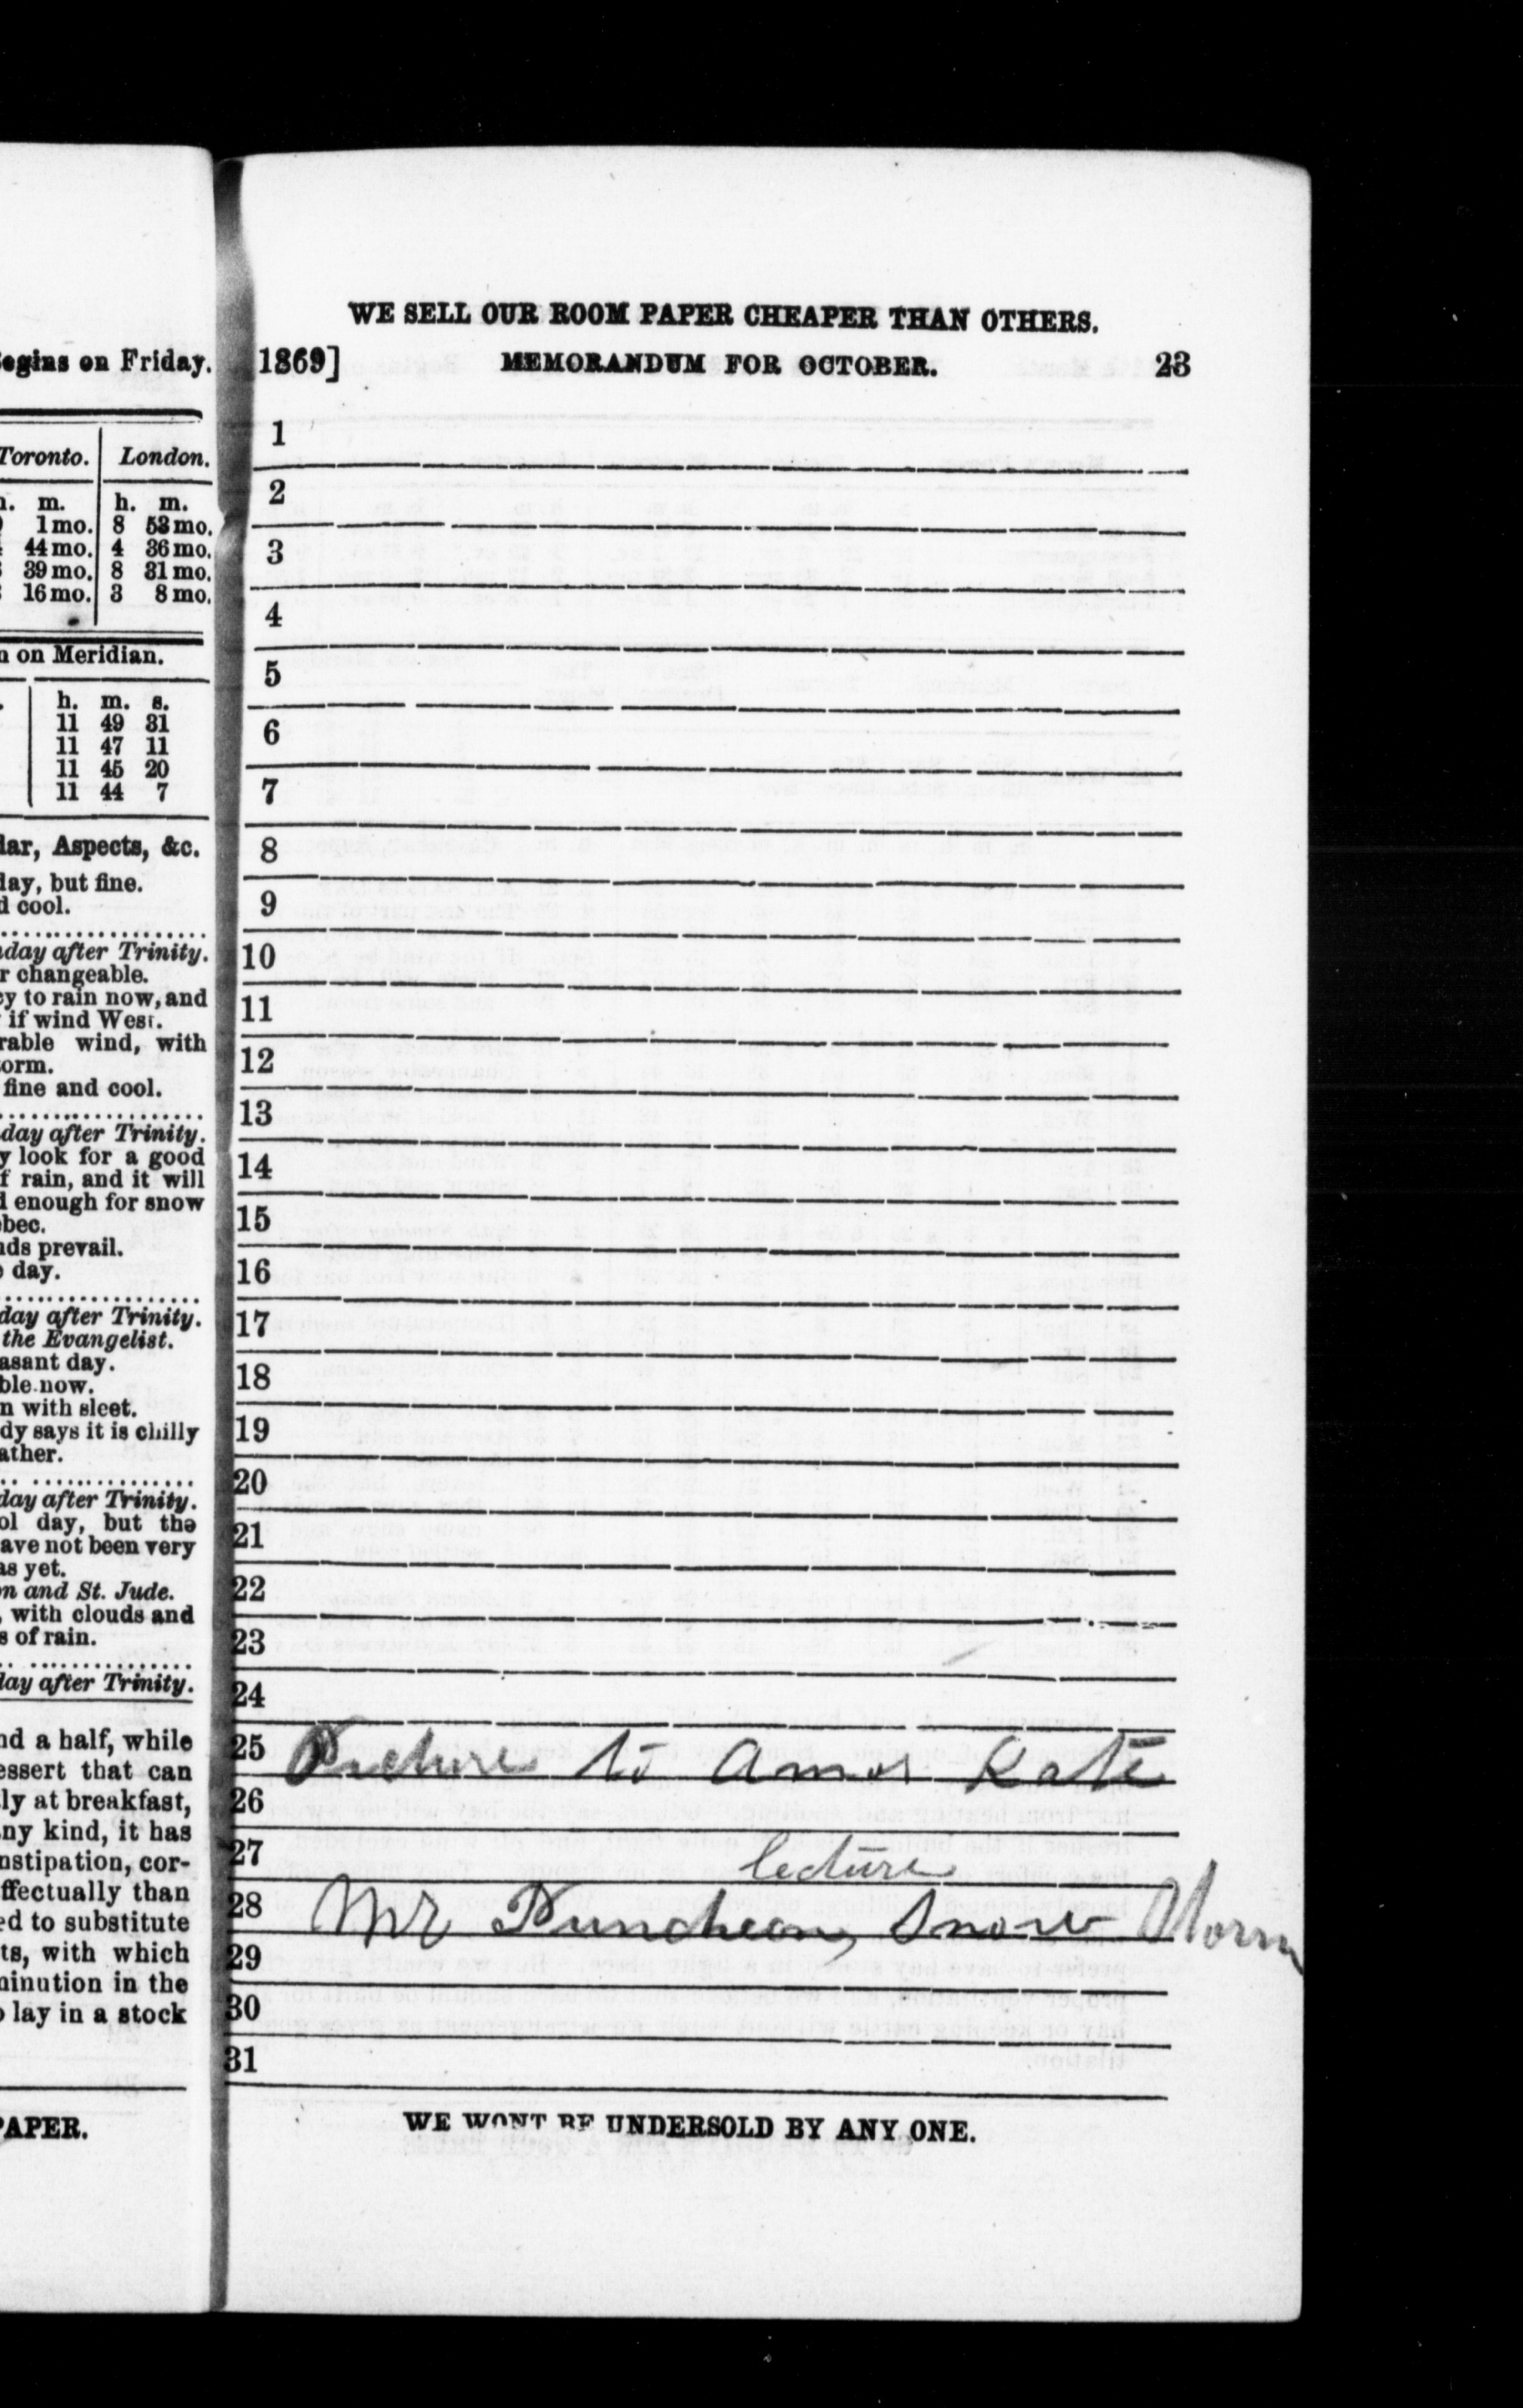 egins on Friday.
Toronto. London.
m. h. m.
1 mo. 8 53 mo.
44 mo. 4 36 mo.
39 mo. 8 31 mo.
16 mo. 3 8 mo.
on Meridian.
h. m. s.
11 49 31
11 47 11
11 45 20
11 44 7
dar, Aspects, &c.
day, but fine.
d cool.
day after Trinity.
r changeable.
cy to rain now, and
if wind West.
rable wind, with
orm.
fine and cool.
day after Trinity.
y look for a good
f rain, and it will
d enough for snow
bec.
nds prevail.
day.
day after Trinity.
the Evangelist.
asant day.
ble now.
n with sleet.
dy says it is chilly
ather.
day after Trinity.
ol day, but the
ave not been very
as yet.
n and St. Jude.
, with clouds and
s of rain.
day after Trinity.
nd a half, while
essert that can
ly at breakfast,
ny kind, it has
nstipation, cor-
ffectually than
ed to substitute
ts, with which
minution in the
o lay in a stock
PAPER.
WE SELL OUR ROOM PAPER CHEAPER THAN OTHERS.
1869] MEMORANDUM FOR OCTOBER. 23
1
2
3
4
5
6
7
8
9
10
11
12
13
14
15
16
17
18
19
20
21
22
23
24
25 Picture to Amos Kate
26
27 lecture
28 Mr Puncheon, Snow Storm
29
30
31
WE WONT BE UNDERSOLD BY ANY ONE.